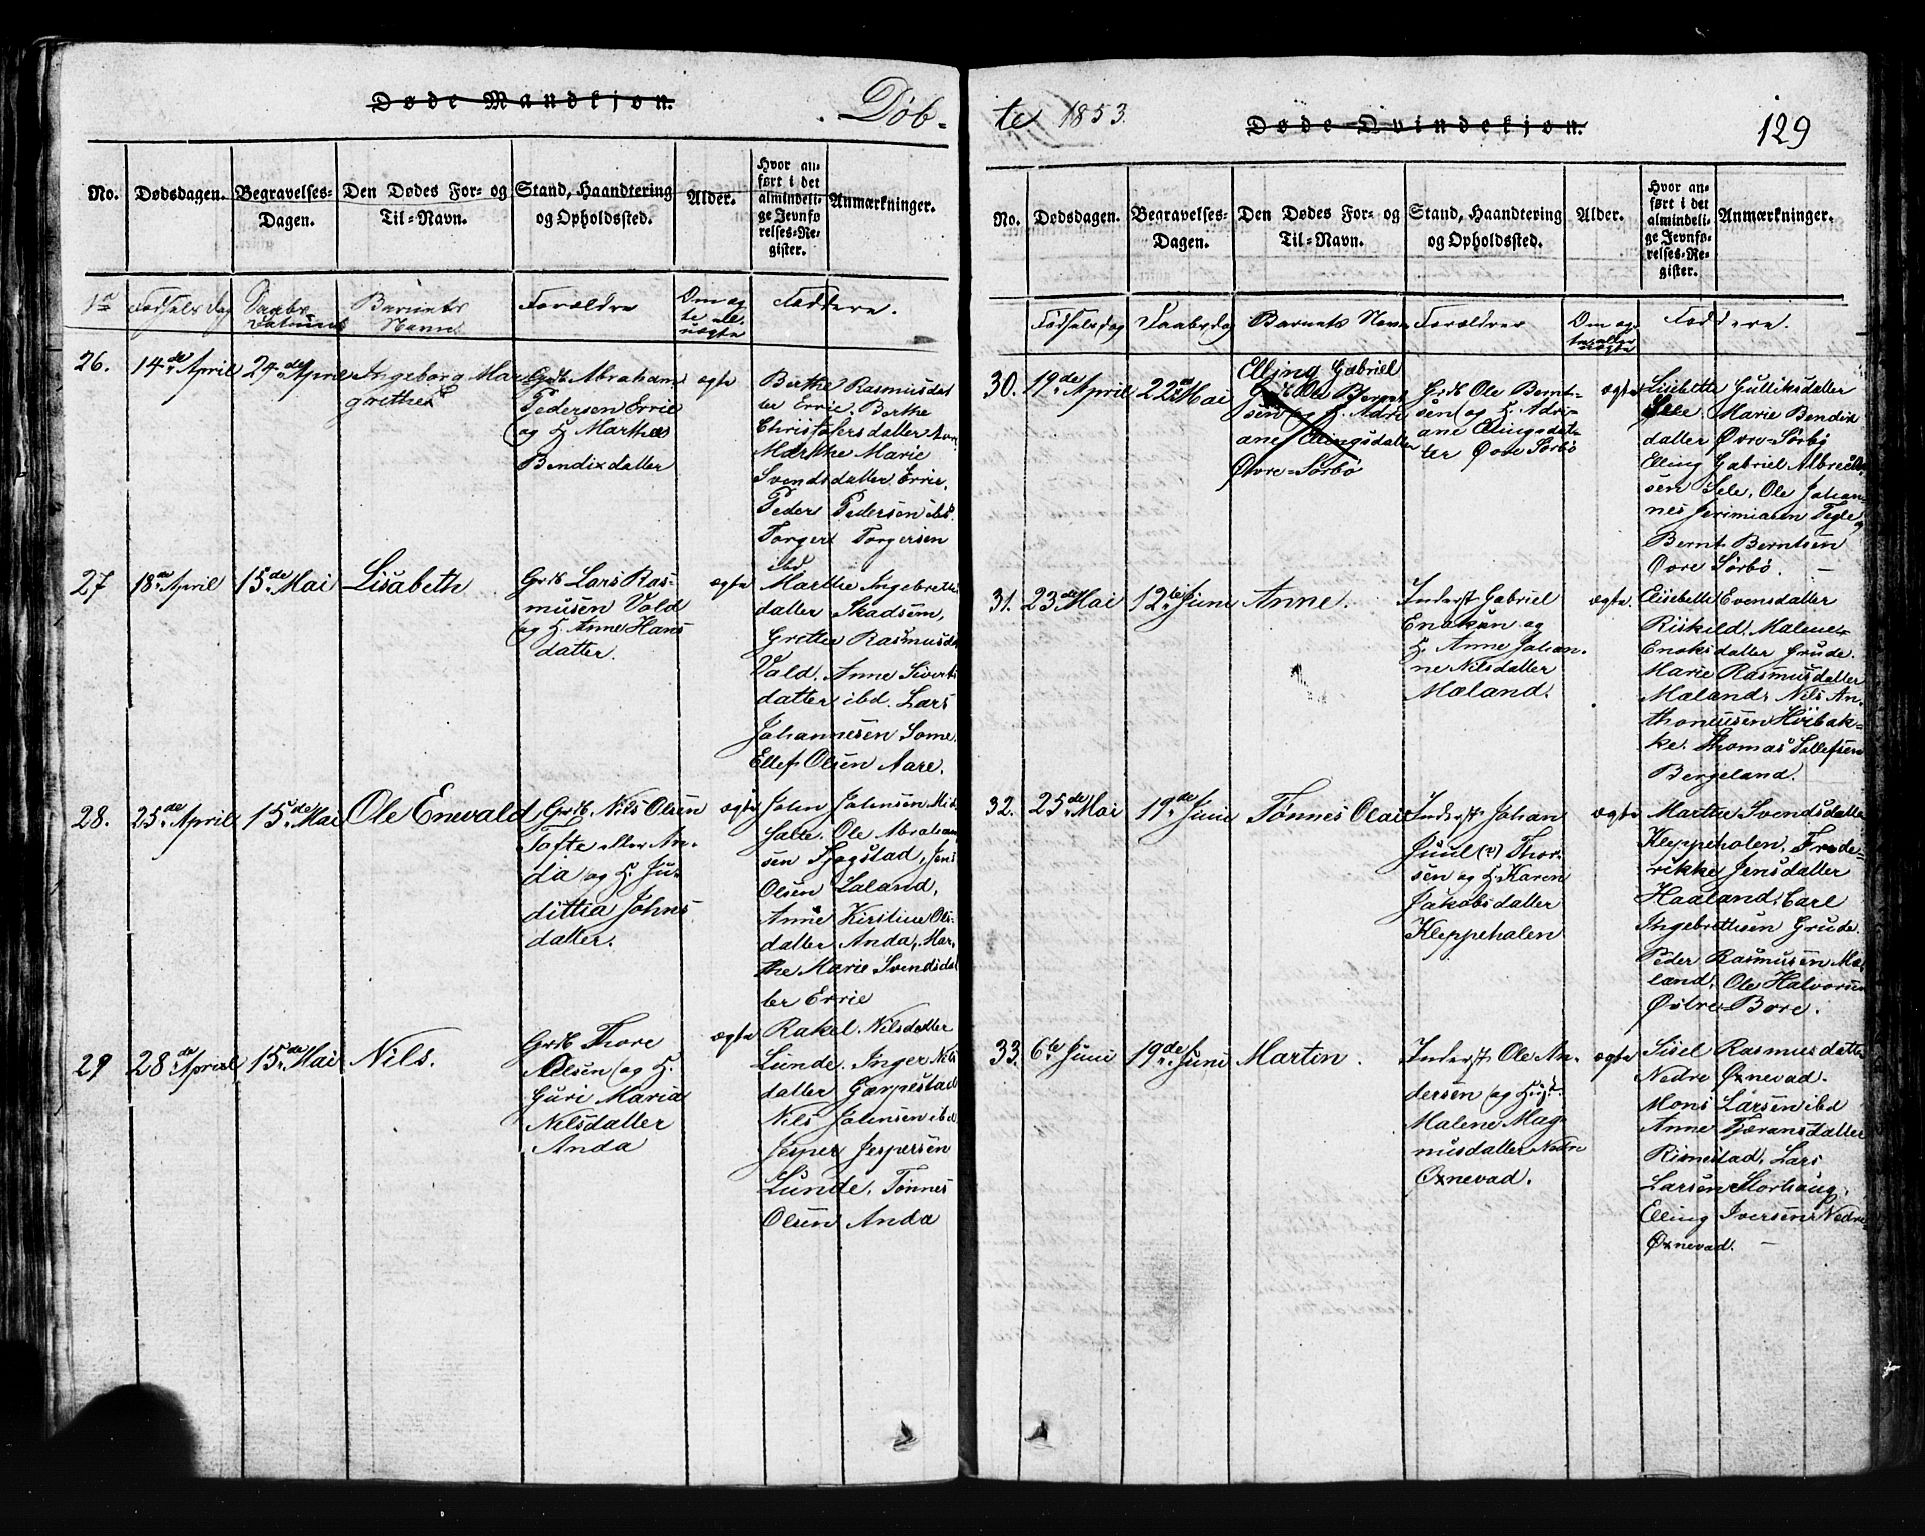 Døde Mandkjøn.
Døb-
No.
Dødsdagen.
Begravelses-
Dagen.
Den Dødes For- og
Til-Navn.
Stand, Haandtering
og Opholdssted.
Alder.
Hvor an-
ført i det
almindeli-
ge Jevnfø
relses-Re-
gister.
Anmærkninger.
Fødselsdag
Daabs
Datum
Barnets
Navn
Forældre
Om æg
te ell.
uægte
Faddere.
26.
14de April
29de April
Ingeborg Mar
grethe
Grdb. Abraham
Pedersen Errie
og H. Marthe
Bendixdatter
ægte
Berthe Rasmusdat
ter Errie. Berthe
Christofersdatter
Marthe Marie
Svendsdatter Errie,
Peder Pedersen ibd.
Torger Torgersen
ibd.
27
18de April
15de Mai
Lisabeth
Grdb Lars Ras-
musen Vold
og H. Anne Hans
datter.
ægte
Marthe Ingebretts
datter Skadsem,
Grethe Rasmusd.
Vold. Anne Siverts
datter ibd. Lars
Johannesen Some.
Ellef Olsen Aare.
28.
25de April
15de Mai
Ole Enevald
Grdb. Nils Olsen
Tofte eller An-
da og H. Ju-
dittia Johns
datter.
ægte
John Johnsen
Ole Abraham
sen Tjøgstad, Jens
Olsen Laland,
Anne Kirstine Ols-
datter Anda, Mar-
the Marie Svendsdat
ter Errie
29
28de April
15de Mai
Nils.
Grdb Thore
Olsen og H.
Guri Maria
Nilsdatter
Anda
ægte
Rakel Nilsdatter
Lunde. Inger Nils
datter Gærpestad
Nils Johnsen ibd
Jesper Jespersen
Lunde, Tønnes
Olsen Anda
te 1853.
Døde Qvindekjøn.
129
No.
Dødsdagen.
Begravelses-
Dagen.
Den Dødes For- og
Til-Navn.
Stand, Haandtering
og Opholdssted.
Alder.
Hvor an-
ført i det
almindeli-
ge Jevnfø-
relses-Re-
gister.
Anmærkninger.
Fødselsdag
Daabsdag
Barnets Navn
Forældre
Om æg-
te eller
uægte
Faddere.
30.
19de April
22de Mai
Elling Gabriel
Grdb Ole Bernt
sen og H. Adri
ane Ellingsdatter
Øvre-Sørbø
Grdb Ole Bernt-
sen og H. Adri-
ane Ellingsdat-
ter Øvre Sørbø
ægte
Lisebette Gulliksdatter
Sele. Marie Bendix
datter Øvre-Sørbø
Elling Gabriel Albrecht
sen Sele, Ole Johan-
nes Jerimiasen Tegle
Bernt Berntsen
Øvre Sørbø. —
31.
23de Mai
12te Juni
Anne.
Inderst Gabriel
Enoksen og
H. Anne Johan-
ne Nilsdatter
Mæland.
ægte.
Elisebette Evensdatter
Riskild. Malene
Enoksdatter Grude.
Marie Rasmusdatter
Mæland. Nils An-
thoniussen Hølbak-
ke. Thomas Tollefsen
Bergeland.
32.
25de Mai
19de Juni
Tønnes Olai
Inderst Johan
Juul (?) Thor-
sen og H. Karen
Jakobsdatter
Kleppehalen
ægte
Marthe Svendsdatter
Kleppehalen, Frede-
rikke Jensdatter
Haaland, Carl
Ingebrettsen Grude.
Peder Rasmusen Mæ
land, Ole Halvorsen
Østre Bore.
33.
6te Juni
19de Juni
Martin.
Inderst Ole An-
dersen og Hust.
Malene Mag-
nusdatter Nedre
Øxnevad.
ægte
Sisel Rasmusdatter
Nedre Øxnevad.
Mons Larsen ibd
Anne Tjeransdatter
Rimestad, Lars
Larsen Storhaug,
Elling Iversen Nedre
Øxnevad. —